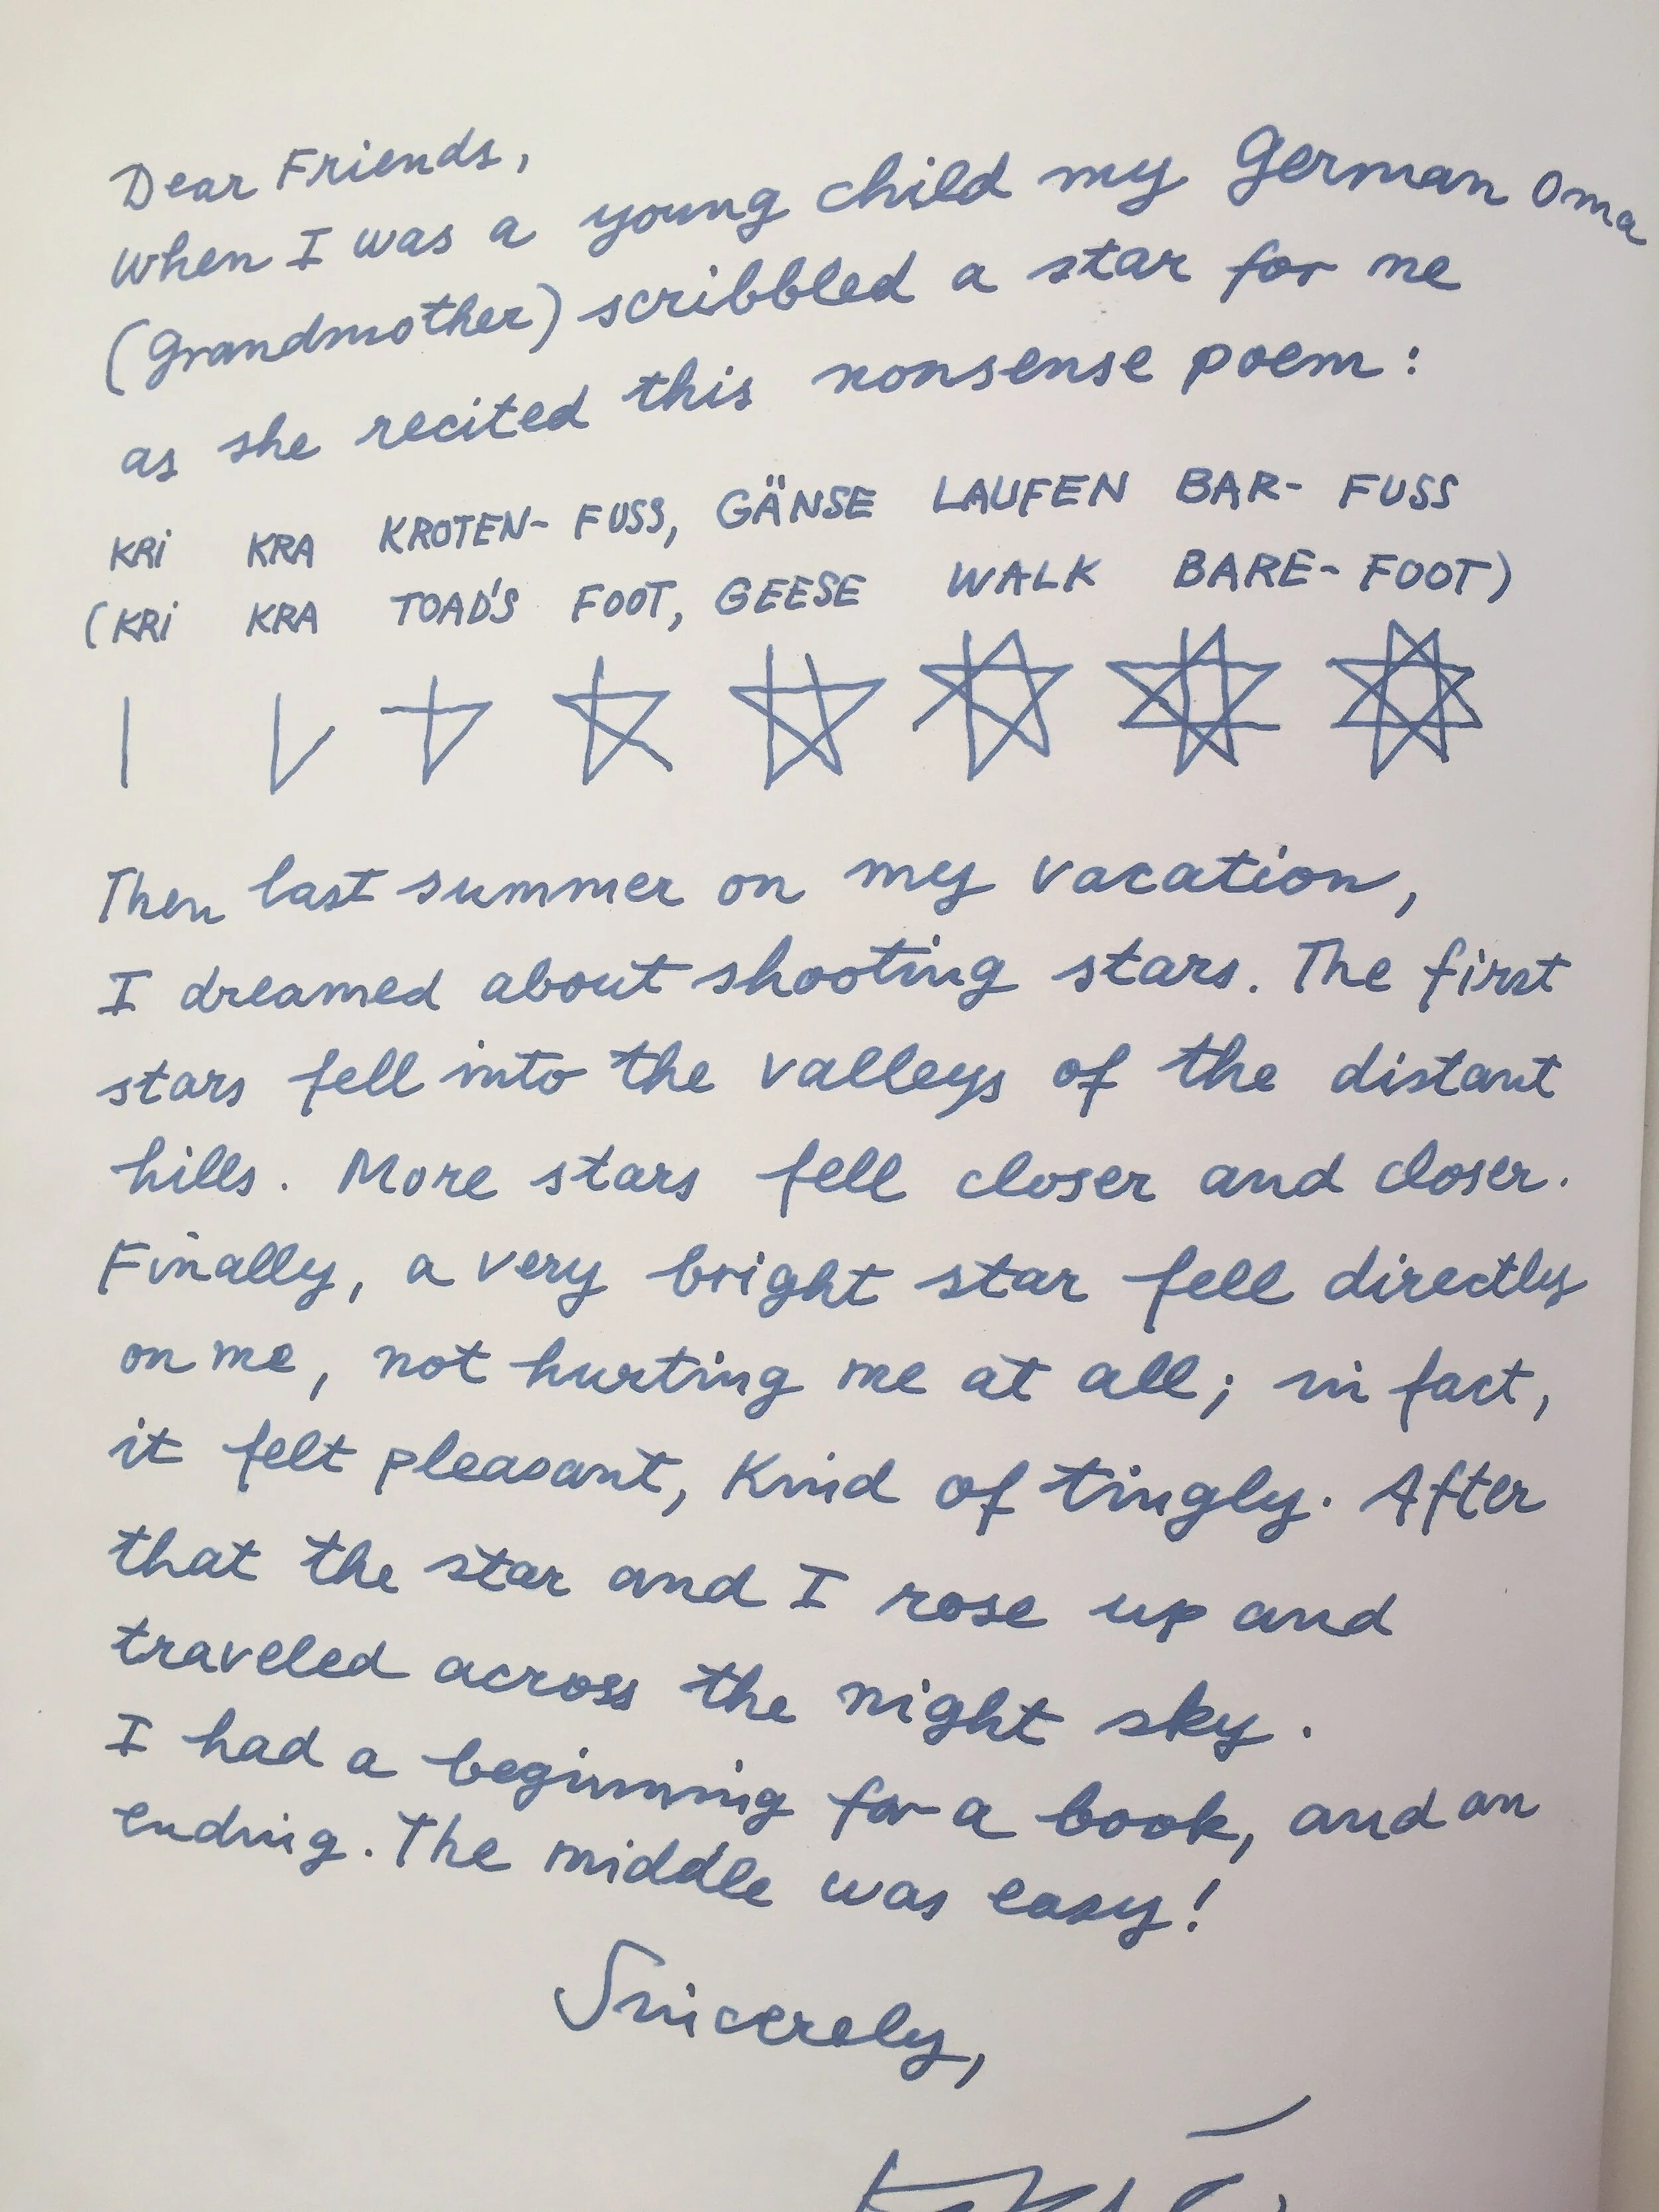 Dear Friends,
when I was a young child my German Oma
(Grandmother) scribbled a star for me
as she recited this nonsense poem:
KRi KRA KROTEN-FUSS, GÄNSE LAUFEN BAR-FUSS
(KRi KRA TOAD'S FOOT, GEESE WALK BARE-FOOT)
Then last summer on my vacation,
I dreamed about shooting stars. The first
stars fell into the valleys of the distant
hills. More stars fell closer and closer.
Finally, a very bright star fell directly
on me, not hurting me at all; in fact,
it felt pleasant, kind of tingly. After
that the star and I rose up and
traveled across the night sky.
I had a beginning for a book, and an
ending. The middle was easy!
Sincerely,